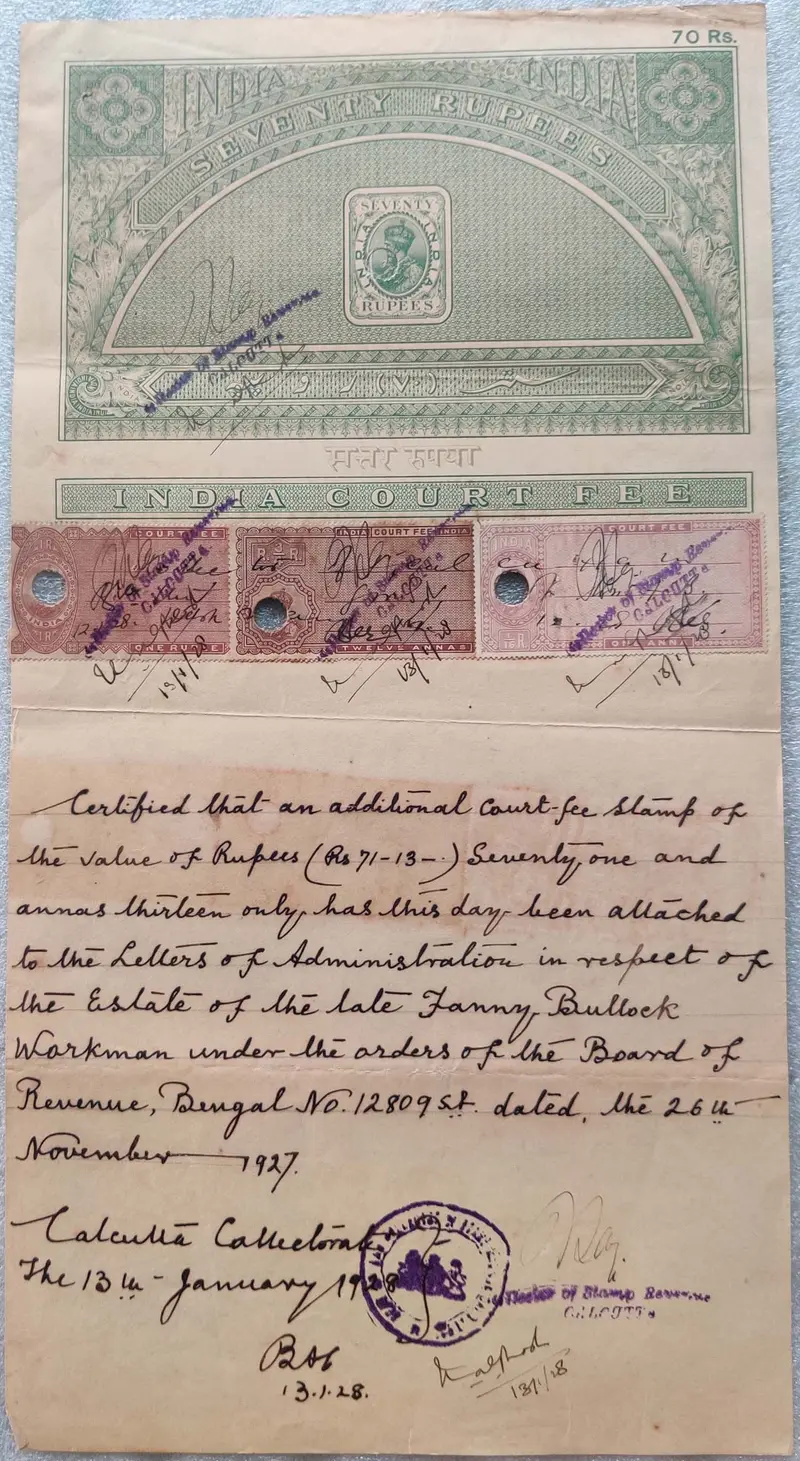 70 Rs.
INDIA INDIA
SEVENTY RUPEES
SEVENTY
INDIA INDIA
RUPEES
Collector of Stamp Revenue
CALCUTTA
ستر (٧٠) روپیہ
INDIA COURT FEE
COURT FEE INDIA COURT FEE INDIA INDIA COURT FEE
Collector of Stamp Revenue Collector of Stamp Revenue Collector of Stamp Revenue
CALCUTTA CALCUTTA CALCUTTA
ONE RUPEE TWELVE ANNAS ONE ANNA
13/1/28 13/1/28 13/1/28
Certified that an additional court-fee stamp of
the value of Rupees (Rs 71-13-.) Seventy one and
annas thirteen only, has this day been attached
to the Letters of Administration in respect of
the Estate of the late Fanny Bullock
Workman under the orders of the Board of
Revenue, Bengal No. 12809 St. dated, the 26th
November 1927.
Calcutta Collectorate
The 13th January 1928
Collector of Stamp Revenue
CALCUTTA
13.1.28.
13/1/28